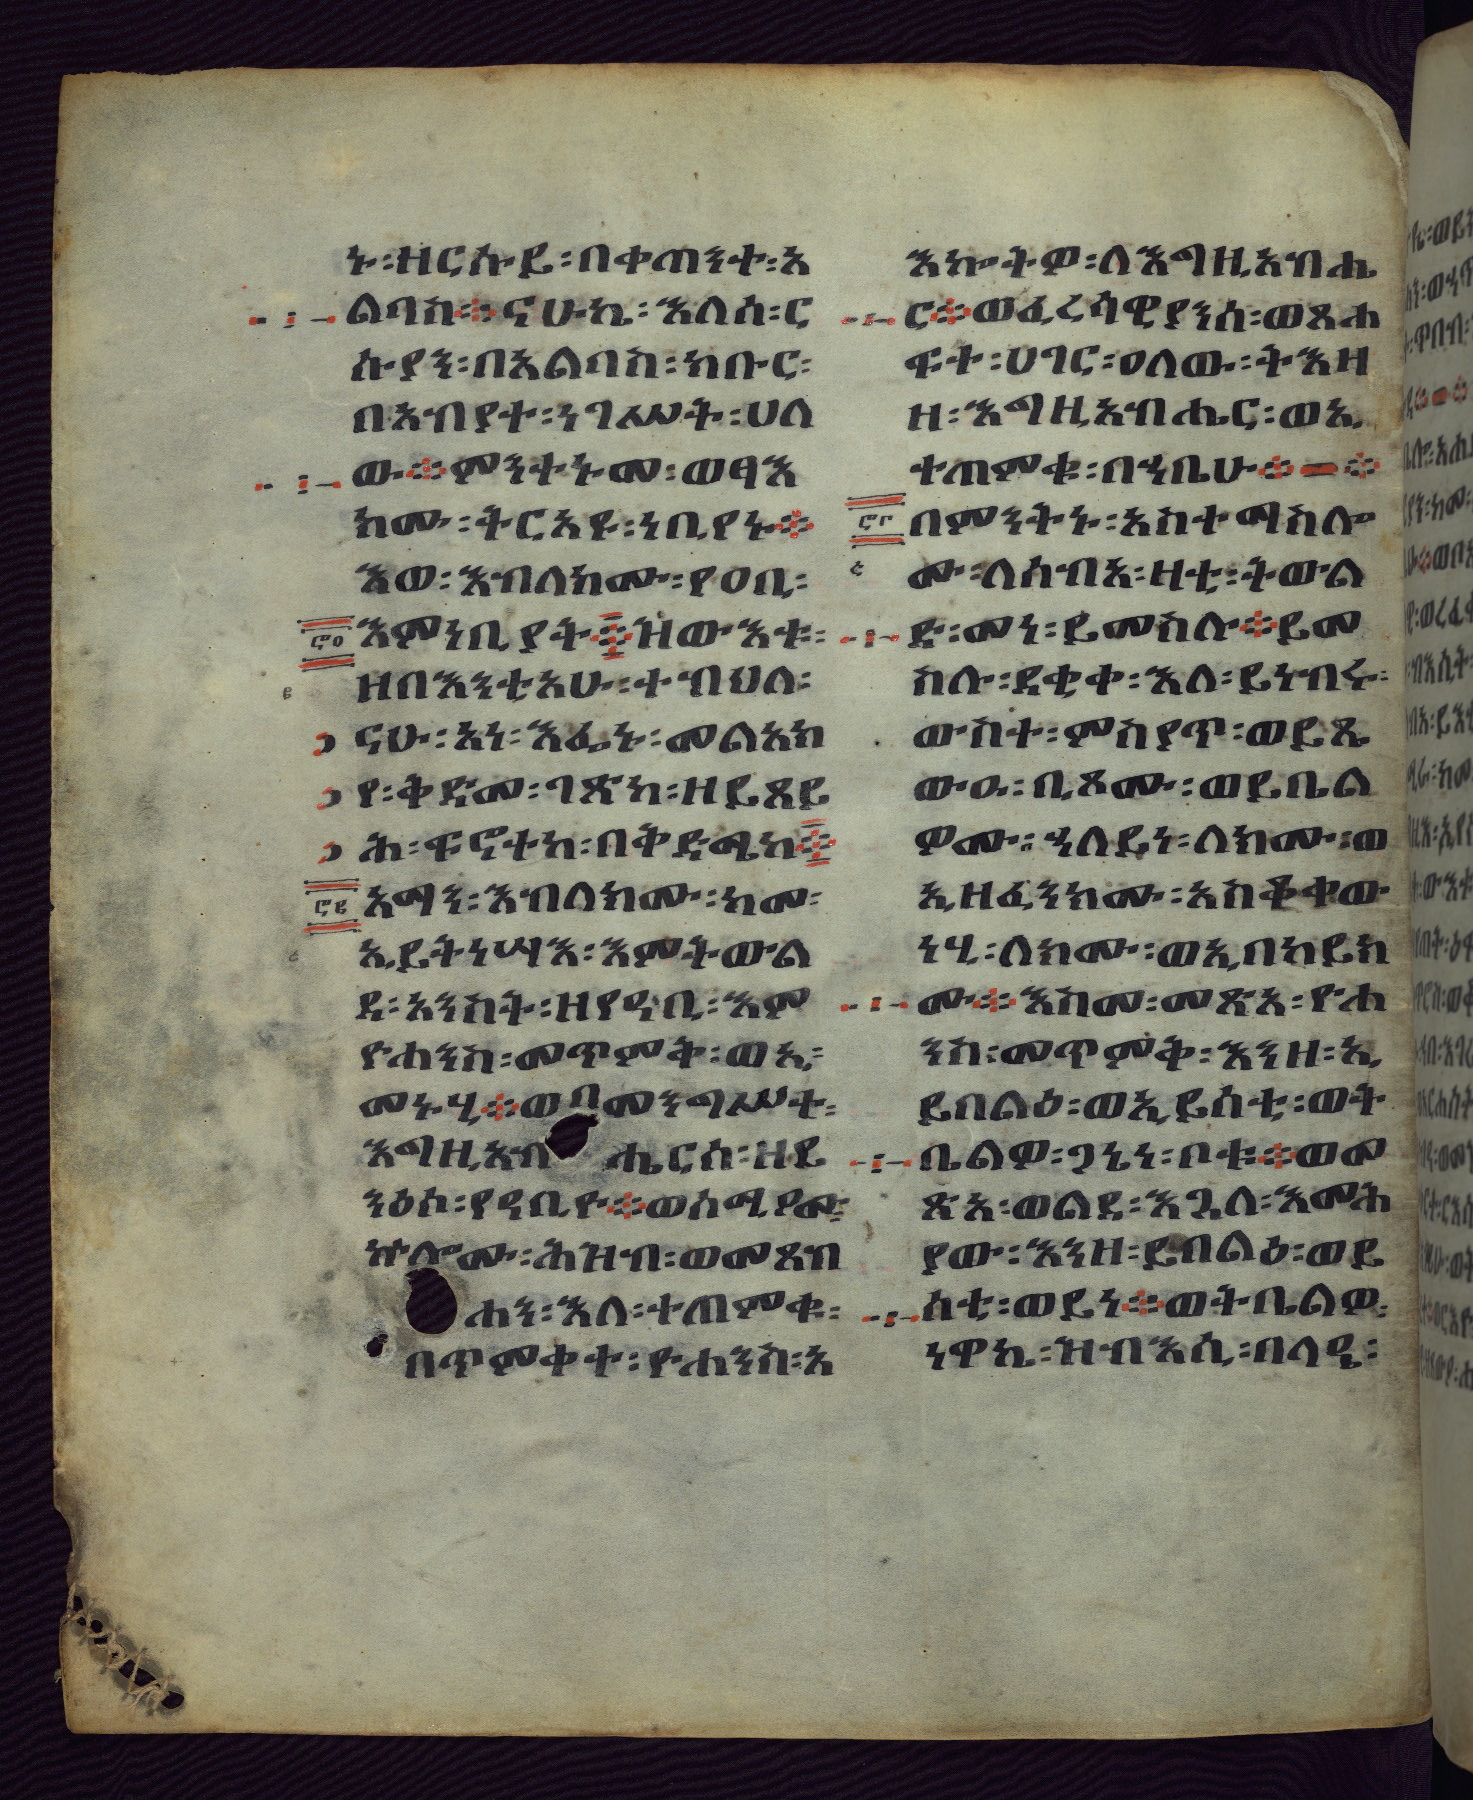 ኑ፡ዘርሱይ፡በቀጠንት፡አ
ልባስ፨ናሁኬ፡እለሰ፡ር
ሱያን፡በአልባስ፡ክቡር፡
በአብያተ፡ነገሥት፡ሀለ
ው፨ምንተኑመ፡ወፃእ
ክሙ፡ትርአዩ፡ነቢየኑ፨
እወ፡እብለክሙ፡የዐቢ፡
፸፬
እምነቢያት፨ዝውእቱ፡
፪
ዘበእንቲአሁ፡ተብህለ፡
ናሁ፡አነ፡እፌኑ፡መልአክ
የ፡ቅድመ፡ገጽከ፡ዘይጸይ
ሕ፡ፍኖተከ፡በቅድሜከ፨
አማን፡እብለክሙ፡ከመ፡
ኢይትነሣእ፡እምትውል
ደ፡አንስት፡ዘየዐቢ፡እም
ዮሐንስ፡መጥምቅ፡ወኢ፡
መኑሂ፨ወበመንግሥተ፡
እግዚአብሔርሰ፡ዘይ
ንዕስ፡የዐቢዮ፨ወሰሚዖሙ፡
ኵሎሙ፡ሕዝብ፡ወመጸብ
ሐን፡እለ፡ተጠምቁ፡
በጥምቀተ፡ዮሐንስ፡አ
እኰትዎ፡ለእግዚአብሔ
ር፨ወፈሪሳዊያንሰ፡ወጸሐ
ፍተ፡ሀገር፡ዐለው፡ትእዘ
ዘ፡እግዚአብሔር፡ወኢ
ተጠምቁ፡በኀቤሁ፨
በምንትኑ፡አስተማስሎ
ሙ፡ለሰብአ፡ዛቲ፡ትውል
ድ፡መነ፡ይመስሉ፨ይመ
ስሉ፡ደቂቀ፡እለ፡ይነብሩ፡
ውስተ፡ምስያጥ፡ወይጼ
ውዑ፡ቢጾሙ፡ወይቤል
ዎሙ፡ኀለይነ፡ለክሙ፡ወ
ኢዘፈንክሙ፡አስቆቀው
ነሂ፡ለክሙ፡ወኢበከይክ
ሙ፨እስመ፡መጽአ፡ዮሐ
ንስ፡መጥምቅ፡እንዘ፡ኢ
ይበልዕ፡ወኢይሰቲ፡ወት
ቤልዎ፡ጋኔን፡ቦቱ፨ወመ
ጽአ፡ወልደ፡እጓለ፡እመሕ
ያው፡እንዘ፡ይበልዕ፡ወይ
ሰቲ፡ወይነ፨ወትቤልዎ፡
ነዋኬ፡ዝብእሲ፡በላዒ፡